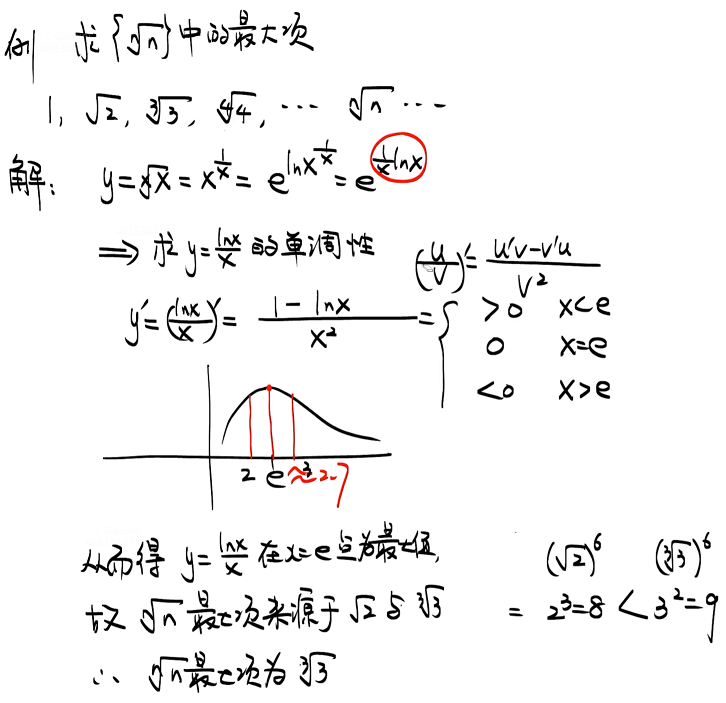 例 求{ⁿ√n}中的最大项
1, √2, ³√3, ⁴√4, ⋯ ⁿ√n ⋯
解: y=ˣ√x=x^(1/x)=e^(lnx^(1/x))=e^((1/x)lnx)
⟹ 求y=lnx/x的单调性
(u/v)'=(u'v-v'u)/v²
y'=(lnx/x)'=(1-lnx)/x²={ >0 x<e
0 x=e
<0 x>e
2 e 3
≈2.7
从而得 y=lnx/x 在x=e点为最大值,
故 ⁿ√n最大项来源于√2与³√3
∴ ⁿ√n最大项为³√3
(√2)⁶ (³√3)⁶
=2³=8<3²=9